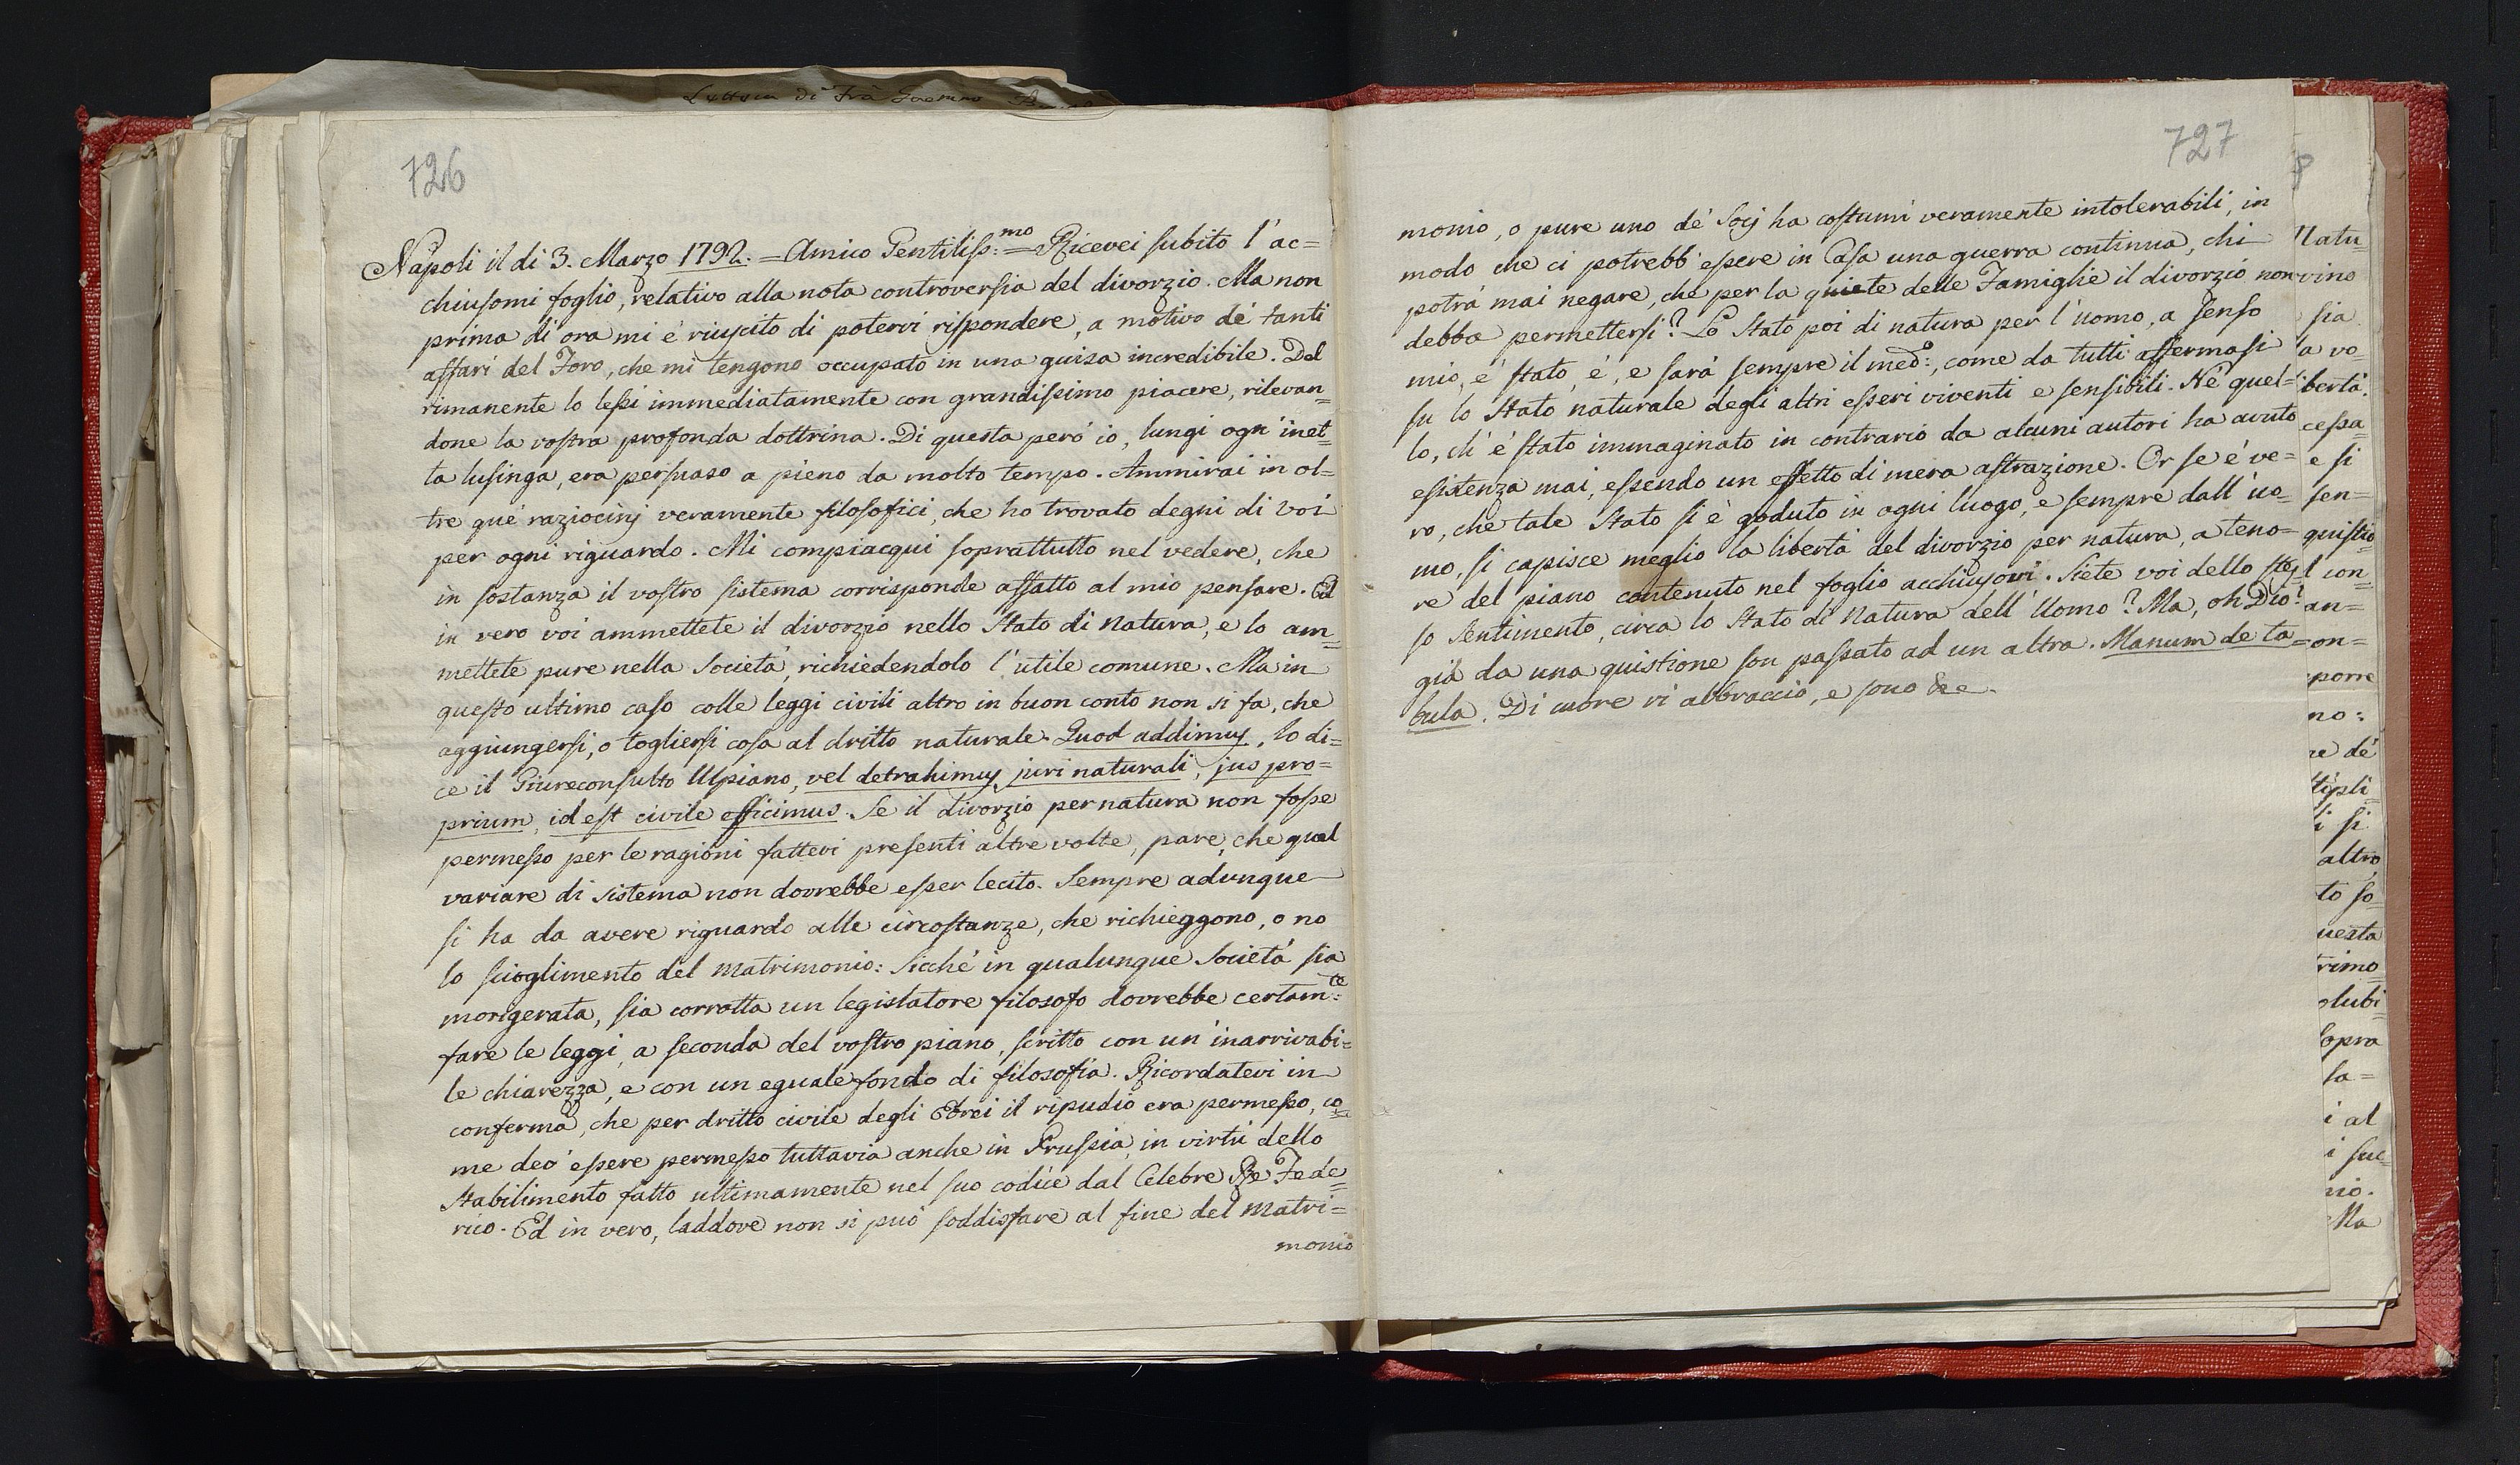 Lettera di Frà Gaetano
726
Napoli il dì 3. Marzo 1792. = Amico Gentiliss:mo = Ricevei subito l'ac=
chiusomi foglio, relativo alla nota controversia del divorzio. Ma non
prima di ora mi è riuscito di potervi rispondere, a motivo dè tanti
affari del Foro, che mi tengono occupato in una guisa incredibile. Del
rimanente lo lessi immediatamente con grandissimo piacere, rilevan=
done la vostra profonda dottrina. Di questa però io, lungi ogn'inet=
ta lusinga, era persuaso a pieno da molto tempo. Ammirai in ol=
tre què raziocinj veramente filosofici, che ho trovato degni di voi
per ogni riguardo. Mi compiacqui soprattutto nel vedere, che
in sostanza il vostro sistema corrisponde affatto al mio pensare. Ed
in vero voi ammettete il divorzio nello Stato di Natura, e lo am=
mettete pure nella Società, richiedendolo l'utile comune. Ma in
questo ultimo caso colle leggi civili altro in buon conto non si fa, che
aggiungersi, o togliersi cosa al dritto naturale. Quod addimus, lo di=
ce il Giureconsulto Ulpiano, vel detrahimus juri naturali, jus pro=
prium, id est civile efficimus. Se il divorzio per natura non fosse
permesso per le ragioni fattevi presenti altre volte, pare, che qual
variare di sistema non dovrebbe esser lecito. Sempre adunque
si ha da avere riguardo alle circostanze, che richieggono, o no
lo scioglimento del matrimonio: Sicchè in qualunque Società sia
morigerata, sia corrotta un legislatore filosofo dovrebbe certam:te
fare le leggi, a seconda del vostro piano, scritto con un'inarrivabi=
le chiarezza, e con un eguale fondo di filosofia. Ricordatevi in
conferma, che per dritto civile degli Ebrei il ripudio era permesso, co=
me deo' essere permesso tuttavia anche in Prussia, in virtù dello
Stabilimento fatto ultimamente nel suo codice dal Celebre Re Fede=
rico. Ed in vero, laddove non si può soddisfare al fine del matri=
monio
727
monio, o pure uno dè Socj ha costumi veramente intolerabili, in
modo che ci potrebb'essere in Casa una guerra continua, chi
potrà mai negare, che per la quiete delle Famiglie il divorzio non
debba permettersi? Lo Stato poi di natura per l'uomo, a senso
mio, è stato, è, e sarà sempre il medo:, come da tutti affermasi
su lo Stato naturale degli altri esseri viventi e sensibili. Nè quel=
lo, ch'è stato immaginato in contrario da alcuni autori ha avuto
esistenza mai, essendo un effetto di mera astrazione. Or se è ve=
ro, che tale Stato si è goduto in ogni luogo, e sempre dall'uo=
mo, si capisce meglio la libertà del divorzio per natura, a teno=
re del piano contenuto nel foglio acchiusovi. Siete voi dello stes=
so Sentimento, circa lo Stato di Natura dell'Uomo? Ma, oh Dio!
già da una quistione son passato ad un altra. Manum de ta=
bula. Di cuore vi abbraccio, e sono &c.
Natu=
vino
sia
a vo=
bertà.
cessa=
e si
sen=
quistio=
l con=
an=
on=
porre
no:
re dè
tipli=
i si
altro
to so=
uesta
rimo=
olubi=
sopra
sa=
i al
i suc=
nio.
Ma